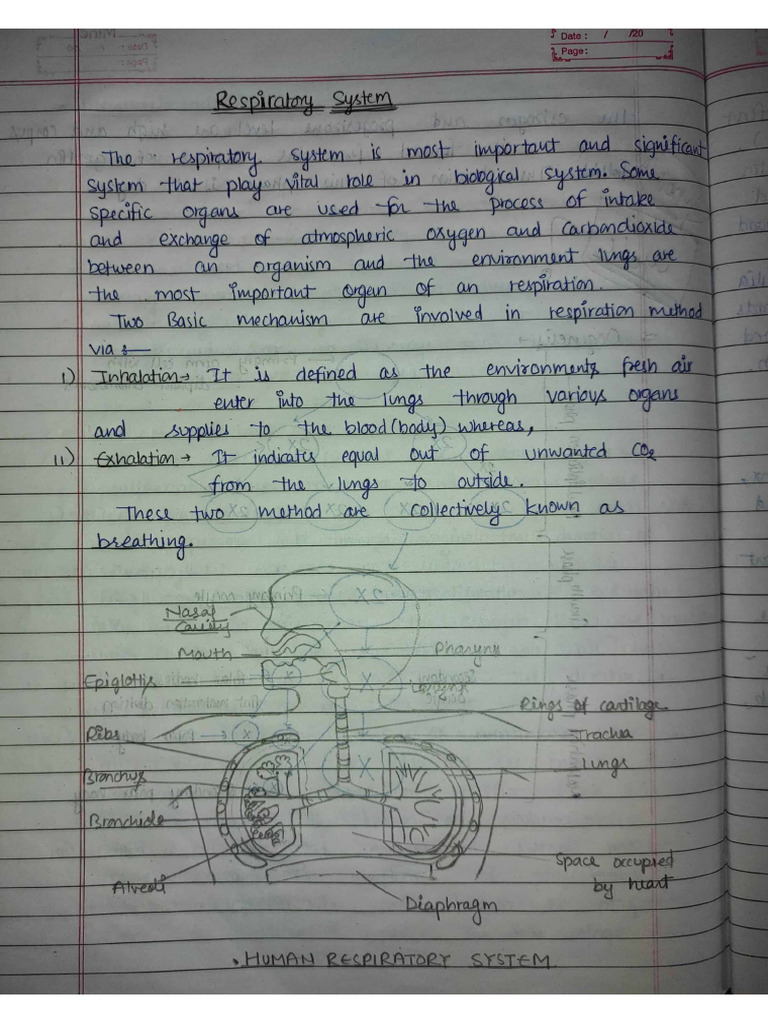 Date: / /20
Page:
Respiratory System
The respiratory system is most important and significant
system that play vital role in biological system. Some
specific organs are used for the process of intake
and exchange of atmospheric oxygen and carbondioxide
between an organism and the environment lungs are
the most important organ of an respiration.
Two Basic mechanism are involved in respiration method
via :—
i) Inhalation → It is defined as the environments fresh air
enter into the lungs through various organs
and supplies to the blood (body) whereas,
ii) Exhalation → It indicates equal out of unwanted CO2
from the lungs to outside.
These two method are collectively known as
breathing.
Nasal
Cavity
Mouth
Pharynx
Epiglottis
Larynx
Rings of cartilage
Ribs
Trachea
Bronchus
Lungs
Bronchiole
Space occupied
by heart
Alveoli
Diaphragm
. HUMAN RESPIRATORY SYSTEM